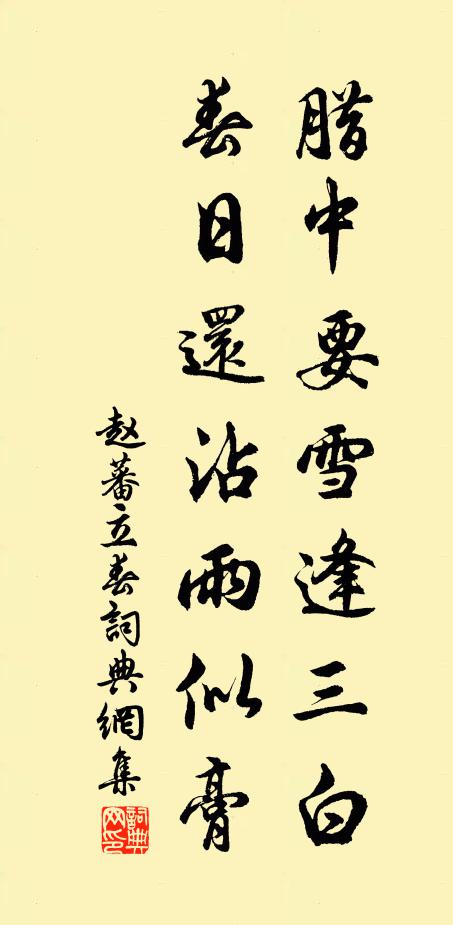 腊中要雪逢三白
春日還沾雨似膏
赵蕃立春詞典網集
詞典网印